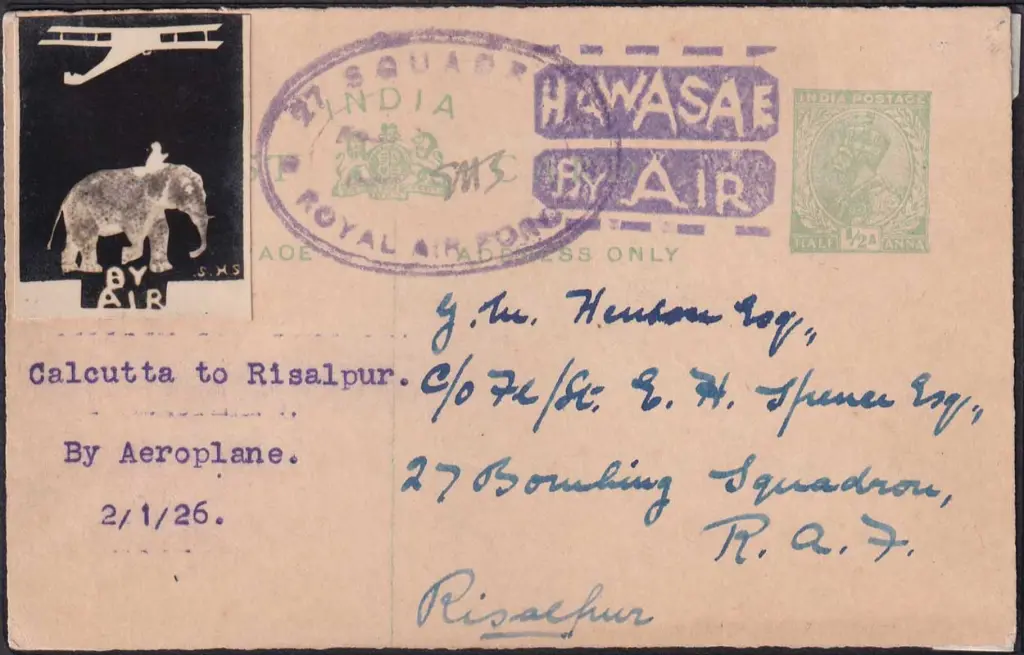 BY
AIR
S.H.S
27 SQUADR
ROYAL AIR FORC
INDIA
SHS
HAWASAE
BY AIR
INDIA POSTAGE
HALF ½A ANNA
ADDRESS ONLY
Calcutta to Risalpur.
By Aeroplane.
2/1/26.
G. M. Henson Esq,,
C/o Fl/Lt. E. H. Spencer Esq,,
27 Bombing Squadron,
R. A. F.
Risalpur